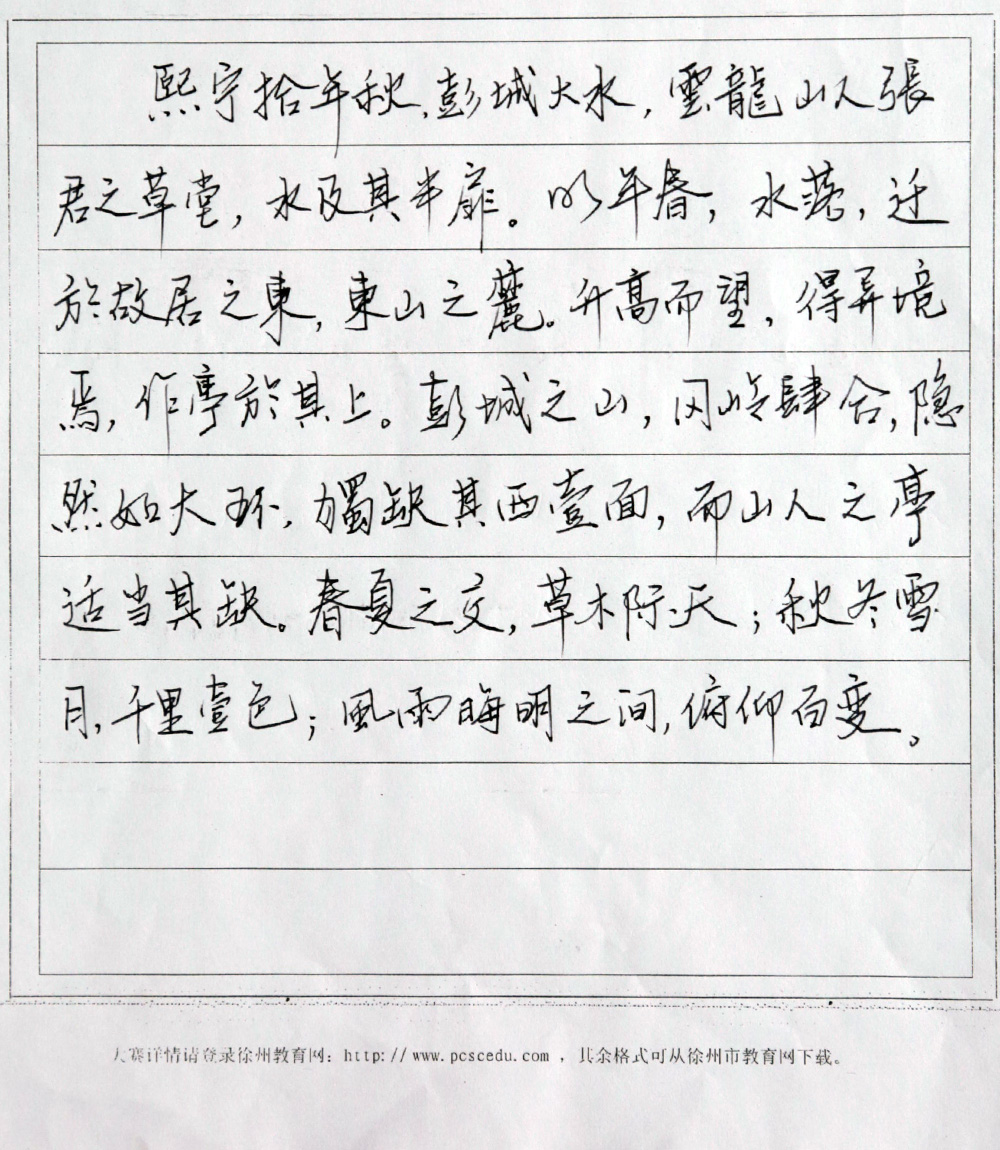 熙宁拾年秋，彭城大水，雲龍山人張
君之草堂，水及其半扉。明年春，水落，迁
於故居之東，東山之麓。升高而望，得异境
焉，作亭於其上。彭城之山，冈岭肆合，隐
然如大环，獨缺其西壹面，而山人之亭
适当其缺。春夏之交，草木际天；秋冬雪
月，千里壹色；風雨晦明之间，俯仰百变。
大赛详情请登录徐州教育网：http://www.pcscedu.com ，其余格式可从徐州市教育网下载。